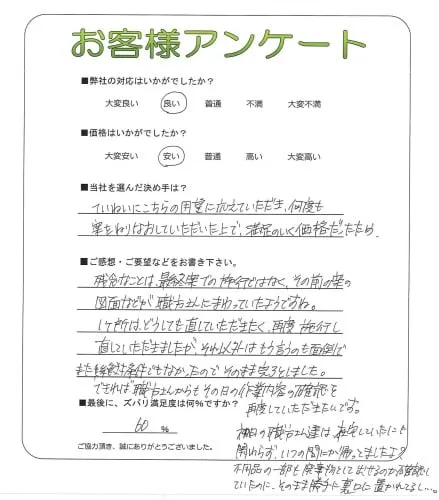 お客様アンケート
■弊社の対応はいかがでしたか?
大変良い 良い 普通 不満 大変不満
■価格はいかがでしたか?
大変安い 安い 普通 高い 大変高い
■当社を選んだ決め手は?
ていねいにこちらの要望に応えていただき、何度も
案をねりなおしていただいた上で、満足のいく価格だったため。
■ご感想・ご要望などをお書き下さい。
残念なことは、最終案での施行ではなく、その前の案の
図面などが職方さんにまわっていたようですね。
1ヶ所は、どうしても直していただきたく、再度施行し
直していただきましたが、それ以外はもう言うのも面倒で
また絶対条件でもなかったのでそのまま完了としました。
できれば職方さんからもその日の作業内容の確認を
再度していただきたいです。
■最後に、ズバリ満足度は何%ですか?
60 %
ご協力頂き、誠にありがとうございました。
の職方さん達は、在宅していたにも
関わらず、いつの間にか帰ってましたよ?
不用品の一部も廃棄物として出せるのか確認して
いたのに、そのまま勝手に裏口に置かれてるし…。